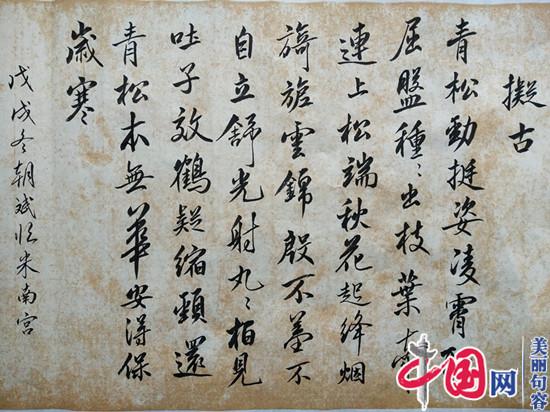 擬古
青松勁挺姿凌霄
屈盤種〻出枝葉
連上松端秋花起絳烟
旖旎雲錦殷不羞不
自立舒光射丸〻柏見
吐子效鶴疑縮頸還
青松本無華安得保
歲寒
戊戌冬朝斌臨米南宮
中国网
美丽句容